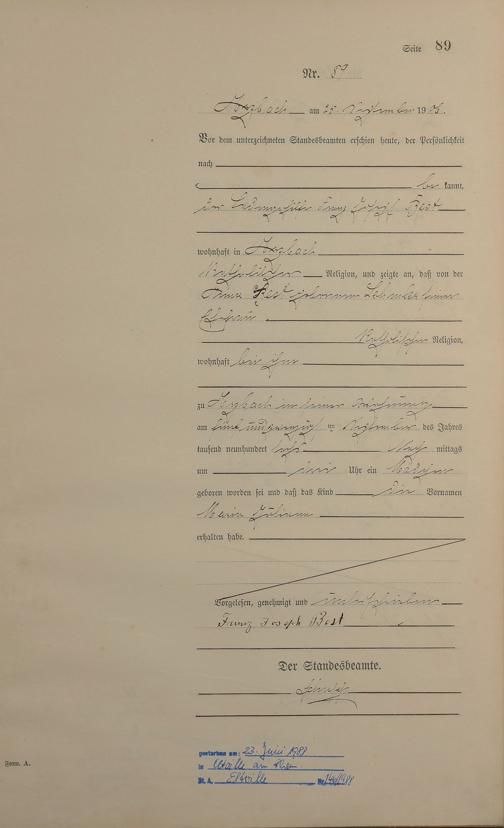 Seite 89
Nr. 89
am 25. September 1906.
Vor dem unterzeichneten Standesbeamten erschien heute, der Persönlichkeit
nach
be kannt,
der Franz Joseph Best
wohnhaft in
Katholischer Religion, und zeigte an, daß von der
Best geborenen seiner
Ehefrau
Katholischer Religion,
wohnhaft bei ihm
zu in seiner Wohnung
am fünf und zwanzig ten September des Jahres
tausend neunhundert sechs Nach mittags
um Uhr ein Mädchen
geboren worden sei und daß das Kind die Vornamen
Maria Juliana
erhalten habe.
Vorgelesen, genehmigt und unterschrieben
Franz Joseph Best
Der Standesbeamte.
gestorben am: 23. Juni 1981
in am Rhein
St. A. Eltville Nr.
Form. A.